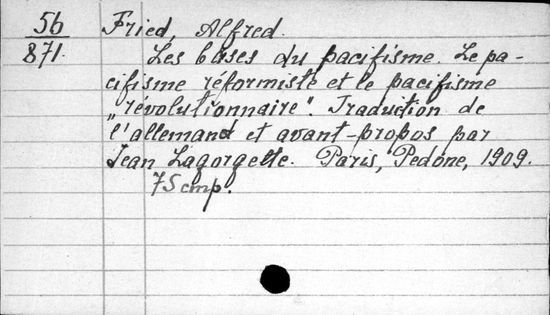 56 Fried, Alfred.
871. Les bases du pacifisme. Le pa-
cifisme réformiste et le pacifisme
„révolutionnaire". Traduction de
l'allemand et avant-propos par
Jean Lagorgette. Paris, Pedone, 1909.
75 стр.